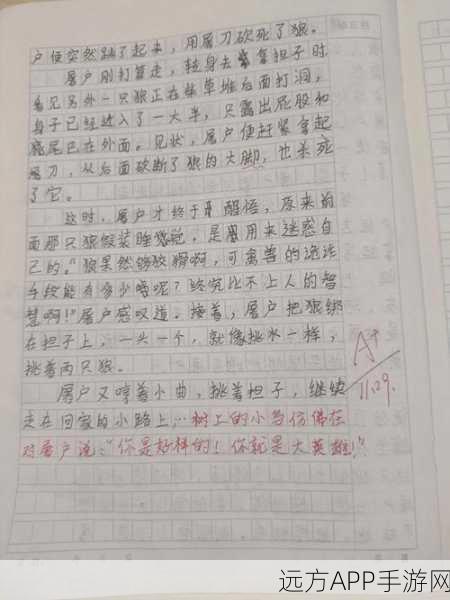 户便突然蹦了起来，用屠刀砍死了狼。
屠户刚打算走，转身去拿担子时
看见另外一只狼正在柴草堆后面打洞，
身子已经进入了一大半，只露出屁股和
尾巴在外面。见状，屠户便赶紧拿起
屠刀，从后面砍断了狼的大脚，也杀死
了它。
这时，屠户才终于醒悟，原来前
面那只狼假装睡觉，是用来迷惑自
己的。“狼果然够狡猾啊，可禽兽的诡诈
手段能有多少呢？终究比不上人的智
慧啊！”屠户感叹道。接着，屠户把狼绑
在担子上，一头一个，就像挑水一样，
挑着两只狼。
屠户又哼着小曲，挑着担子，继续
走在回家的小路上，…树上的小鸟仿佛在
对屠户说：“你是好样的！你就是大英雄！”
A+
11.29.
远方APP手游网